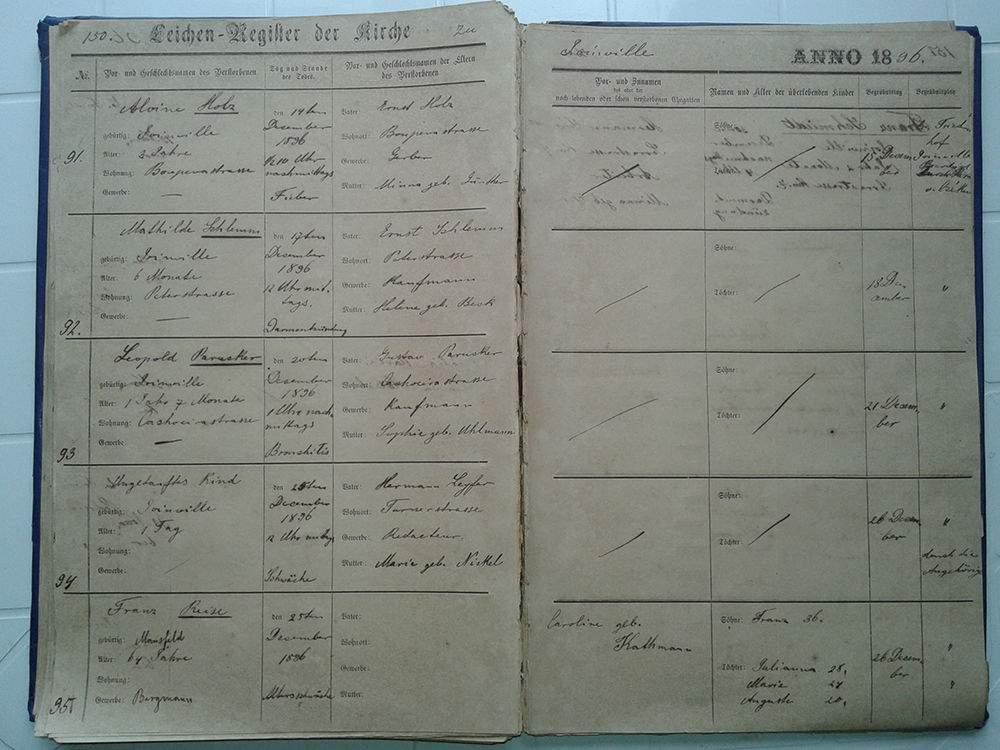 150.
Leichen-Register der Kirche
Zu
Nr.
Vor- und Geschlechtsnamen des Verstorbenen
Tag und Stunde
des Todes.
Vor- und Geschlechtsnamen der Eltern
des Verstorbenen
91.
Alvine Holz
gebürtig: Joinville
Alter: 2 Jahre
Wohnung:
Gewerbe: —
den 14ten
December
1896
½10 Uhr
nachmittags
Fieber
Vater: Ernst Holz
Wohnort:
Gewerbe: Gerber
Mutter: Minna geb. Günther
92.
Mathilde Schlemm
gebürtig: Joinville
Alter: 6 Monate
Wohnung: Peterstrasse
Gewerbe: —
den 17ten
December
1896
12 Uhr mit-
tags.
Darmentzündung
Vater: Ernst Schlemm
Wohnort: Peterstrasse
Gewerbe: Kaufmann
Mutter: Helene geb. Beck
93
Leopold Parucker
gebürtig: Joinville
Alter: 1 Jahr 7 Monate
Wohnung: Cachoeirastrasse
Gewerbe: —
den 20ten
December
1896
1 Uhr nach-
mittags
Bronchitis
Vater: Gustav Parucker
Wohnort: Cachoeirastrasse
Gewerbe: Kaufmann
Mutter: Sophie geb. Uhlmann
94
Ungetauftes Kind
gebürtig: Joinville
Alter: 1 Tag
Wohnung:
Gewerbe:
den 25ten
December
1896
12 Uhr mittags
Schwäche
Vater: Hermann
Wohnort:
Gewerbe: Redacteur.
Mutter: Maria geb. Nickel
95
Franz Reise
gebürtig: Mansfeld
Alter: 64 Jahre
Wohnung:
Gewerbe: Bergmann
den 25ten
December
1896
Altersschwäche
Vater:
Wohnort:
Gewerbe:
Mutter:
Joinville
ANNO 1896.
Vor- und Zunamen
des oder der
noch lebenden oder schon verstorbenen Ehegatten
Namen und Alter der überlebenden Kinder
Begräbnistag
Begräbnisplatz
Söhne:
15 Decem-
ber
Fried-
hof
Joinville
Söhne:
Töchter:
18 De-
cember
"
Söhne:
Töchter:
21 Decem-
ber
"
Söhne:
Töchter:
26 Decem-
ber
"
durch die
Angehörigen
Caroline geb.
Kathmann
Söhne: Franz 36.
Töchter: Julianna 28,
Marie 24
Auguste 20,
26 Decem-
ber
"
"